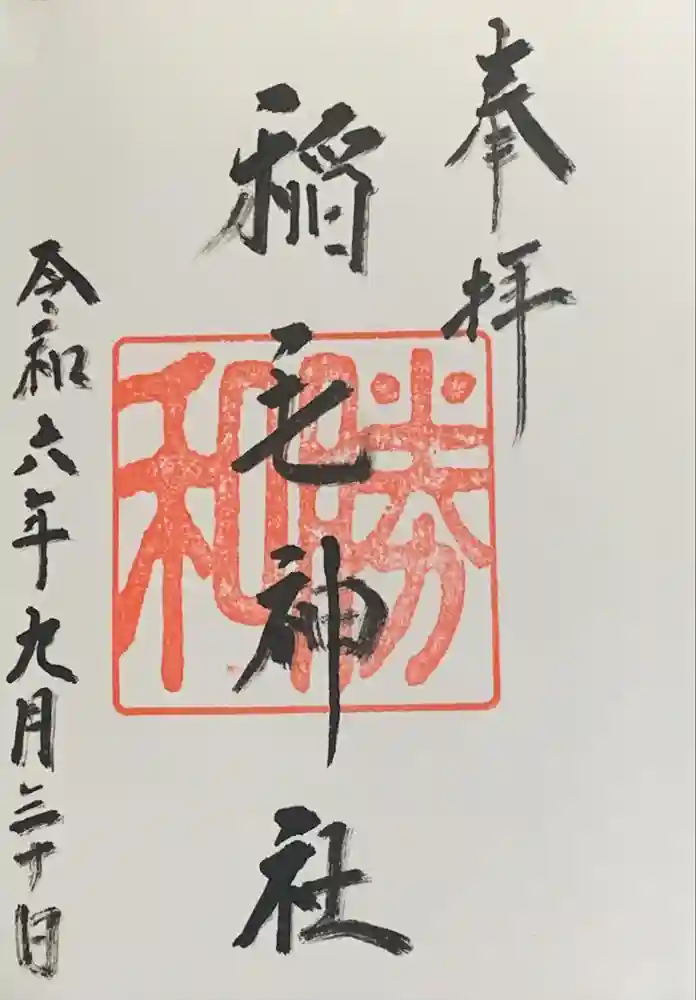 奉拝
稲毛神社
勝和
令和六年九月三十日